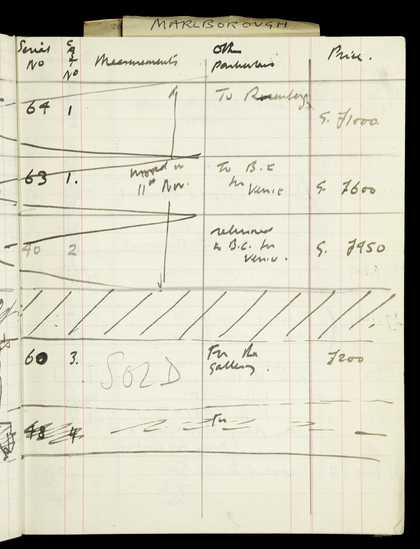 MARLBOROUGH
Serial No Cat No Measurements Oth particulars Price.
64 1. To Rosenberg G. £1000
63 1. moved in 11th Nov. To B.C for Venice G. £600
40 2 returned to B.C. for Venice. G. £950
60 3. SOLD For the gallery. £200
48 4 For